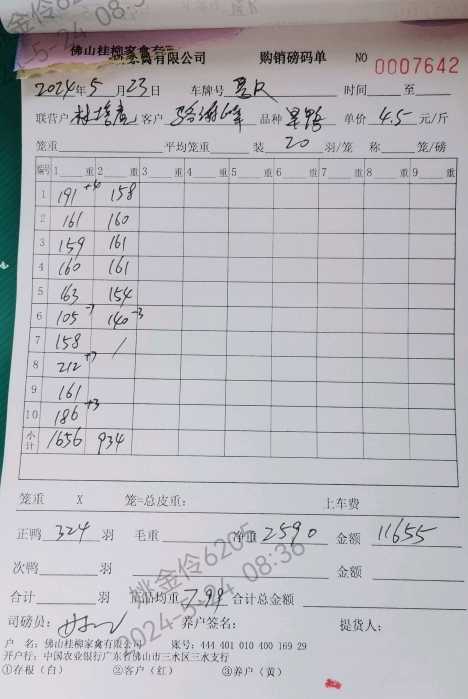 佛山桂柳家禽有限公司 购销磅码单 NO 0007642
2024年5月23日 车牌号 时间 至
联营户 林 客户 品种 单价 4.5 元/斤
笼重 平均笼重 装 20 羽/笼 称 笼/磅
编号 1 重 2 重 3 重 4 重 5 重 6 重 7 重 8 重 9 重
1 191 +4 158
2 161 160
3 159 161
4 160 161
5 163 154
6 105 -7 140 -3
7 158 /
8 212 +7
9 161
10 186 +3
小计 1656 934
笼重 X 笼=总皮重: 上车费
正鸭 324 羽 毛重 净重 2590 金额 11655
次鸭 羽 金额
合计 羽 商品均重 7.99 合计总金额
司磅员: 养户签名: 提货人:
户 名: 佛山桂柳家禽有限公司 账号: 444 401 010 400 169 29
开户行: 中国农业银行广东省佛山市三水区三水支行
①存根（白） ②客户（红） ③养户（黄）
姚金伶6205
2024-5-24 08:36